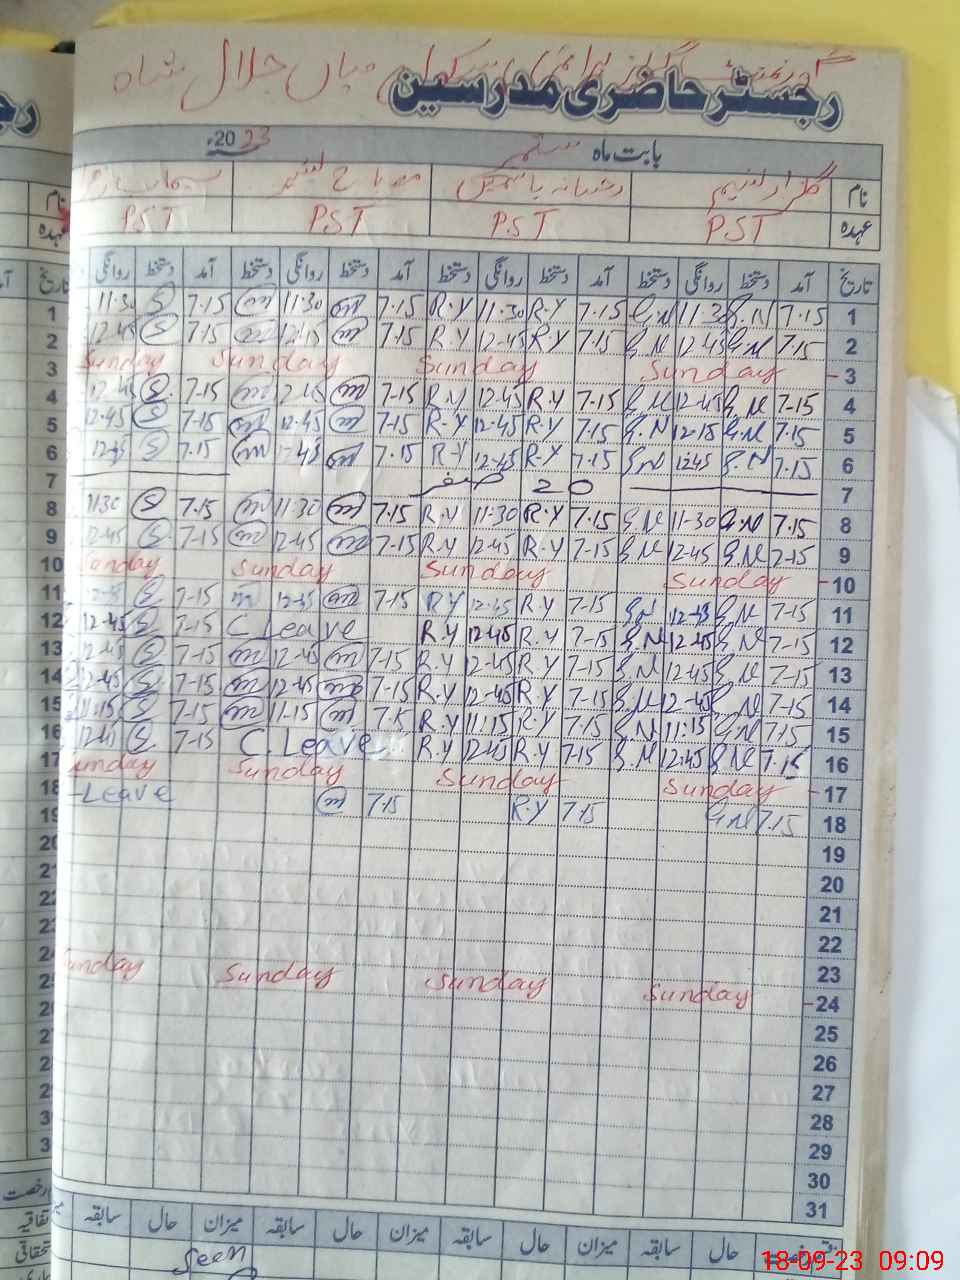 گورنمنٹ گرلز پرائمری سکول میاں جلال شاہ
رجسٹر حاضری مدرسین
بابت ماہ ستمبر 2023ء
نام گلزار نسیم رخسانہ یاسمین
عہدہ PST PST PST PST
تاریخ آمد دستخط روانگی دستخط آمد دستخط روانگی دستخط آمد دستخط روانگی دستخط آمد دستخط روانگی
1 7.15 G.N 11.30 G.N 7.15 R.Y 11.30 R.Y 7.15 m 11.30 m 7.15 S 11.30
2 7.15 G.N 12.45 G.N 7.15 R.Y 12-45 R.Y 7.15 m 12.15 m 7.15 S 12.45
3 Sunday Sunday Sunday Sunday
4 7-15 G.N 12-45 G.N 7-15 R.Y 12.45 R.Y 7-15 m m 7-15 S 12.45
5 7.15 G.N 12-15 G.N 7.15 R.Y 12-45 R-Y 7-15 m 12.45 m 7-15 S 12.45
6 7.15 G.N 12.45 G.N 7.15 R.Y 12.45 R-Y 7.15 m m 7.15 S 12.45
7 20 صفر
8 7.15 G.N 11-30 G.N 7.15 R.Y 11.30 R.Y 7.15 m 11-30 m 7.15 S 11.30
9 7-15 G.N 12-45 G.N 7-15 R.Y 12-45 R.Y 7-15 m 12-45 m 7-15 S 12.45
10 Sunday Sunday Sunday Sunday
11 7-15 G.N G.N 7-15 R.Y 12.45 R.Y 7-15 m 12-45 m 7-15 S
12 7-15 G.N 12-45 G.N 7-15 R.Y 12-45 R.Y C.Leave 7-15 S 12-45
13 7-15 G.N 12.45 G.N 7-15 R.Y 12-45 R.Y 7-15 m 12-45 m 7-15 S 12-45
14 7-15 G.N 12-45 G.N 7-15 R.Y 12-45 R.Y 7-15 m 12-45 m 7-15 S 12-45
15 7-15 G.N 11:15 G.N 7.15 R.Y 11:15 R.Y m 11-15 m 7-15 S 11:15
16 7.15 G.N 12.45 G.N 7-15 R.Y 12.45 R.Y C.Leave 7-15 S
17 Sunday Sunday Sunday Sunday
18 7.15 G.N 7.15 R.Y 7.15 m Leave
19
20
21
22
23
24 Sunday Sunday Sunday Sunday
25
26
27
28
29
30
31
سابقہ حال میزان سابقہ حال میزان سابقہ حال میزان سابقہ
Seen
18-09-23 09:09